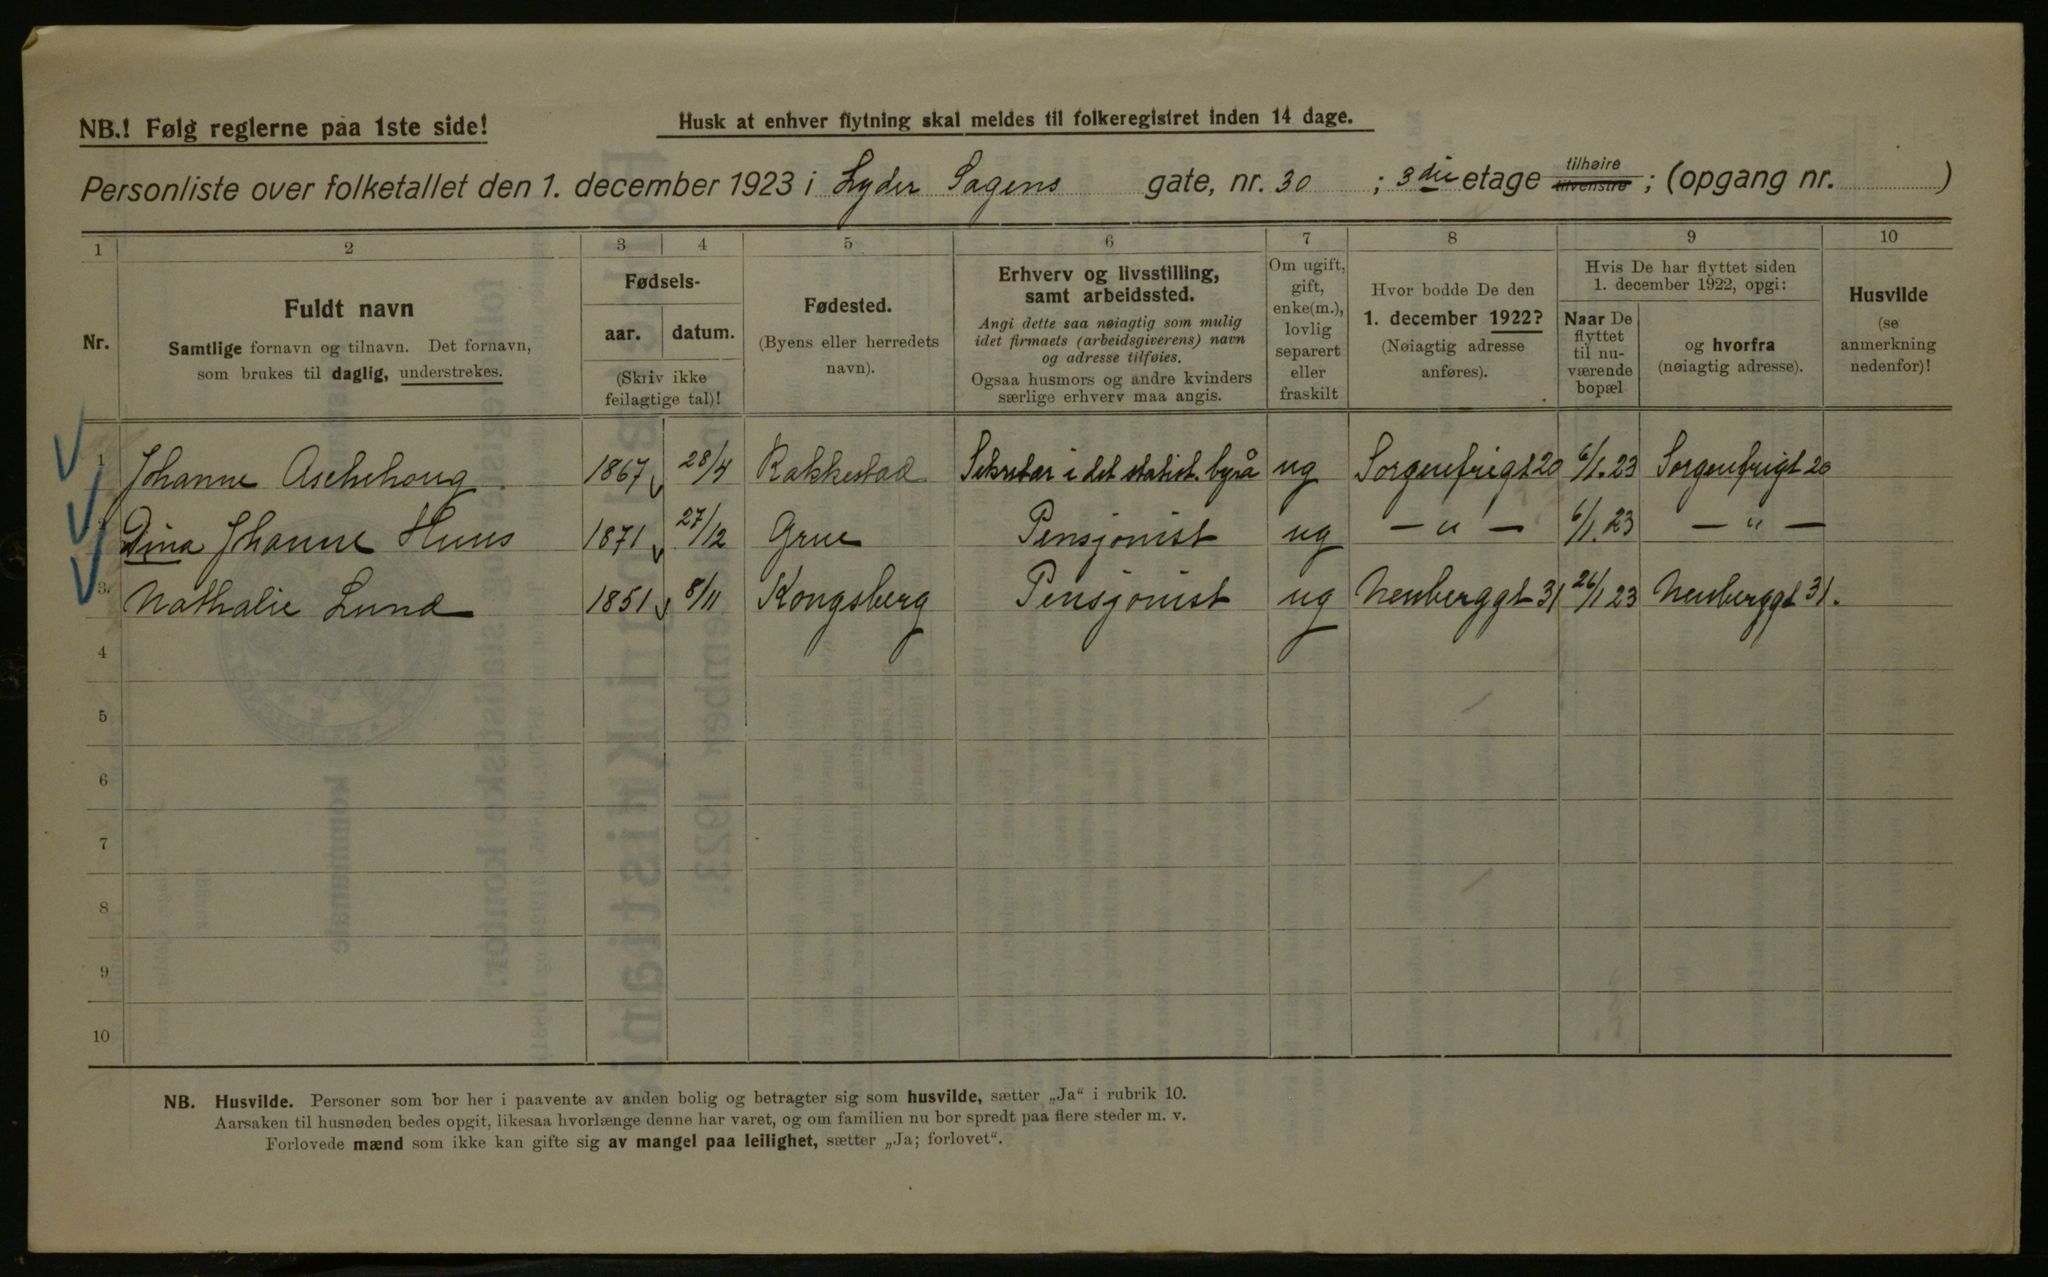 NB.! Følg reglerne paa 1ste side!
Husk at enhver flytning skal meldes til folkeregistret inden 14 dage.
Personliste over folketallet den 1. december 1923 i Lyder Sagens gate, nr. 30 ; 3die etage tilhøire tilvenstre ; (opgang nr. )
1 2 3 4 5 6 7 8 9 10
Nr.
Fuldt navn
Samtlige fornavn og tilnavn. Det fornavn,
som brukes til daglig, understrekes.
Fødsels-
aar. datum.
(Skriv ikke
feilagtige tal)!
Fødested.
(Byens eller herredets
navn).
Erhverv og livsstilling,
samt arbeidssted.
Angi dette saa nøiagtig som mulig
idet firmaets (arbeidsgiverens) navn
og adresse tilføies.
Ogsaa husmors og andre kvinders
særlige erhverv maa angis.
Om ugift,
gift,
enke(m.),
lovlig
separert
eller
fraskilt
Hvor bodde De den
1. december 1922?
(Nøiagtig adresse
anføres).
Hvis De har flyttet siden
1. december 1922, opgi:
Naar De
flyttet
til nu-
værende
bopæl
og hvorfra
(nøiagtig adresse).
Husvilde
(se
anmerkning
nedenfor)!
1 Johanne Aschehoug. 1867 28/4 Rakkestad Sekretær i det statist. byrå ug Sorgenfrigt 20 6/1.23 Sorgenfrigt 20
Dina Johanne Huus 1871 27/12 Grue Pensjonist ug — „ — 6/1.23 — „ —
3. Nathalie Lund 1851 8/11 Kongsberg Pensjonist ug Neuberggt 31 26/1 23 Neuberggt 31.
4
5
6
7
8
9
10
NB. Husvilde. Personer som bor her i paavente av anden bolig og betragter sig som husvilde, sætter „Ja“ i rubrik 10.
Aarsaken til husnøden bedes opgit, likesaa hvorlænge denne har varet, og om familien nu bor spredt paa flere steder m. v.
Forlovede mænd som ikke kan gifte sig av mangel paa leilighet, sætter „Ja; forlovet“.